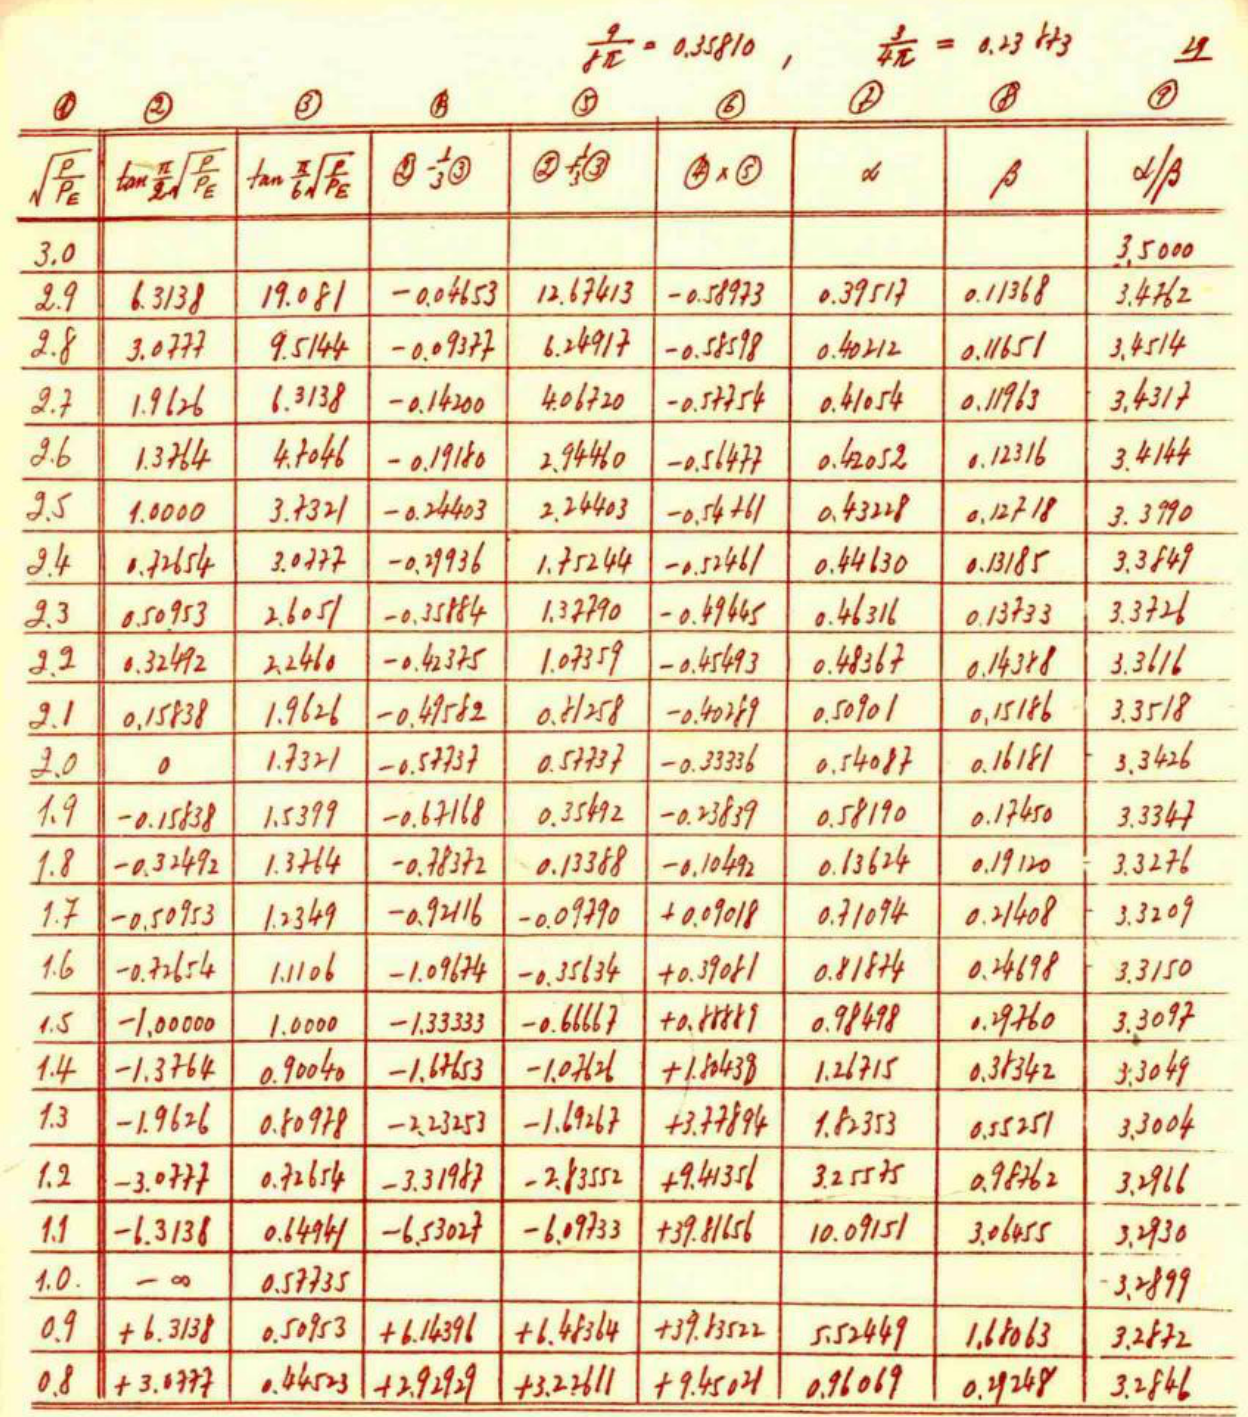 9/8π = 0.35810 , 3/4π = 0.23873 29
① ② ③ ④ ⑤ ⑥ ⑦ ⑧ ⑨
√P/PE tan π/2 √P/PE tan π/6 √P/PE ② -1/3③ ② +1/3③ ④ x ⑤ α β α/β
3.0 3.5000
2.9 6.3138 19.081 -0.04653 12.67413 -0.58973 0.39517 0.11368 3.4762
2.8 3.0777 9.5144 -0.09377 6.24917 -0.58598 0.40212 0.11651 3.4514
2.7 1.9626 6.3138 -0.14200 4.06720 -0.57754 0.41054 0.11963 3.4317
2.6 1.3764 4.7046 -0.19180 2.94460 -0.56477 0.42052 0.12316 3.4144
2.5 1.0000 3.7321 -0.24403 2.24403 -0.54761 0.43228 0.12718 3.3990
2.4 0.72654 3.0777 -0.29936 1.75244 -0.52461 0.44630 0.13185 3.3849
2.3 0.50953 2.6051 -0.35884 1.37790 -0.49445 0.46316 0.13733 3.3726
2.2 0.32492 2.2460 -0.42375 1.07359 -0.45493 0.48367 0.14388 3.3616
2.1 0.15838 1.9626 -0.49582 0.81258 -0.40289 0.50901 0.15186 3.3518
2.0 0 1.7321 -0.57737 0.57737 -0.33336 0.54087 0.16181 3.3426
1.9 -0.15838 1.5399 -0.67168 0.35492 -0.23839 0.58190 0.17450 3.3347
1.8 -0.32492 1.3764 -0.78372 0.13388 -0.10492 0.63624 0.19120 3.3276
1.7 -0.50953 1.2349 -0.92116 -0.09790 +0.09018 0.71094 0.21408 3.3209
1.6 -0.72654 1.1106 -1.09674 -0.35634 +0.39081 0.81874 0.24698 3.3150
1.5 -1.00000 1.0000 -1.33333 -0.66667 +0.88889 0.98498 0.29760 3.3097
1.4 -1.3764 0.90040 -1.67653 -1.07626 +1.80438 1.26715 0.38342 3.3049
1.3 -1.9626 0.80978 -2.23253 -1.69267 +3.77894 1.82353 0.55251 3.3004
1.2 -3.0777 0.72654 -3.31987 -2.83552 +9.41356 3.25575 0.98762 3.2966
1.1 -6.3138 0.64941 -6.53027 -6.09733 +39.81656 10.09151 3.06455 3.2930
1.0. -∞ 0.57735 3.2899
0.9 +6.3138 0.50953 +6.14396 +6.48364 +39.83522 5.52449 1.68063 3.2872
0.8 +3.0777 0.44523 +2.92929 +3.22611 +9.45021 0.96069 0.29248 3.2846